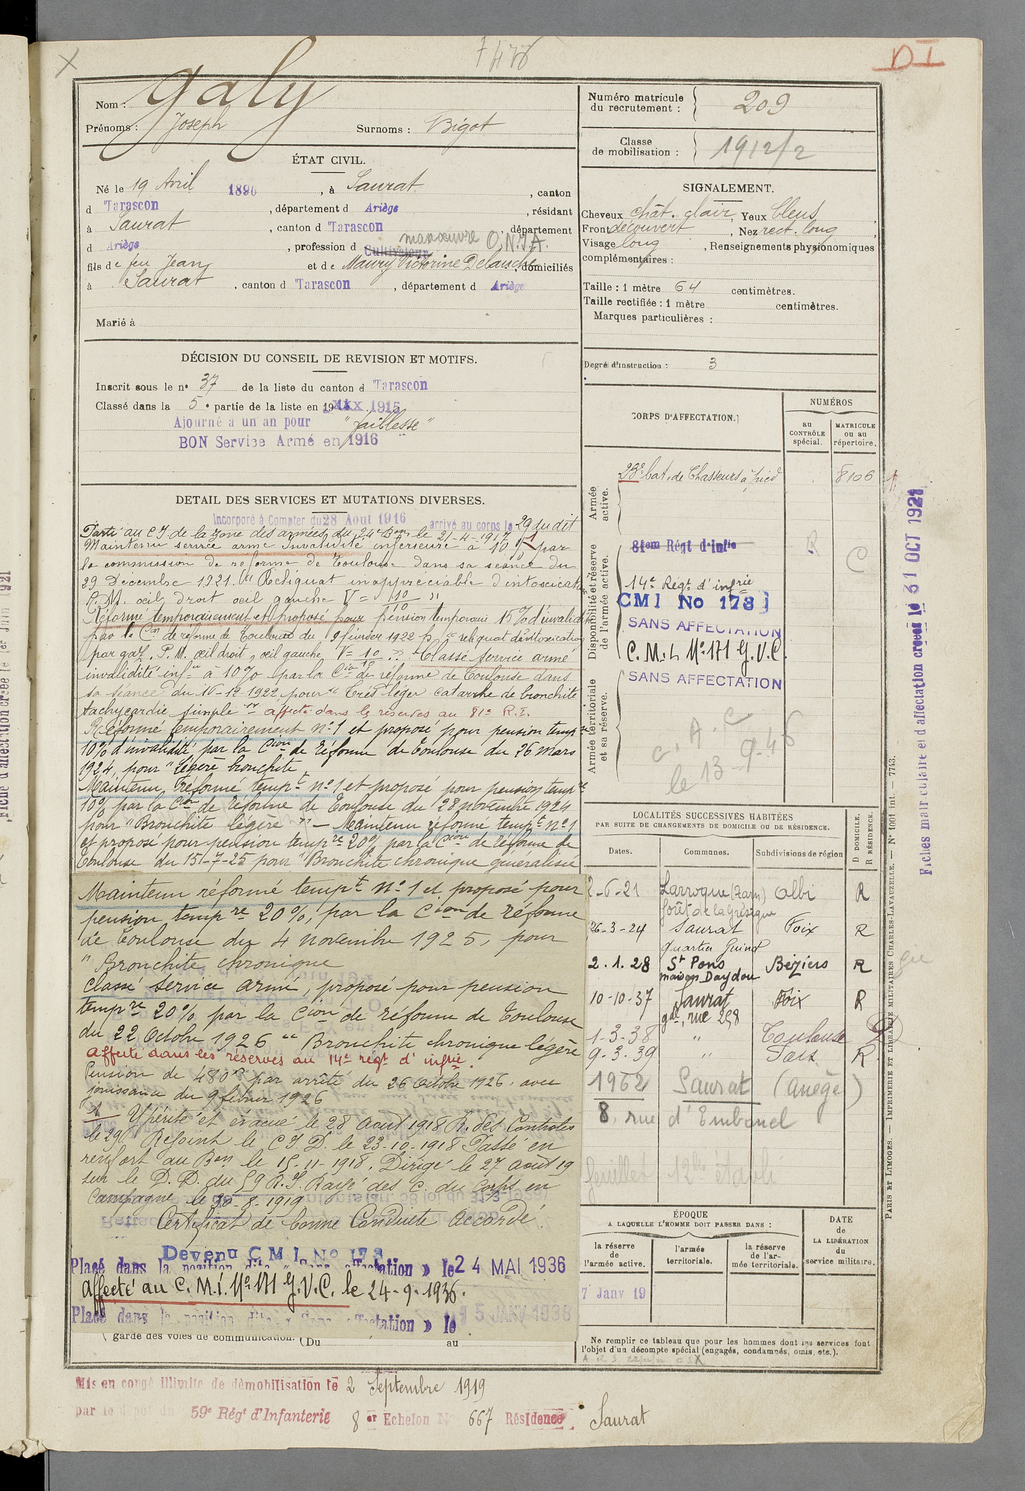 Nom : Galy
Prénoms : Joseph Surnoms : Bigot
ÉTAT CIVIL.
Né le 19 Avril 1896, à Saurat, canton
d Tarascon, département d Ariège, résidant
à Saurat, canton d Tarascon, département
d Ariège, profession d Cultivateur manœuvre O.N.I.A.
fils de feu Jean et de Maury Victorine Delauche, domiciliés
à Saurat, canton d Tarascon, département d Ariège
Marié à
DÉCISION DU CONSEIL DE REVISION ET MOTIFS.
Inscrit sous le n° 37 de la liste du canton d Tarascon
Classé dans la 5e partie de la liste en 1915
Ajourné à un an pour "faiblesse"
BON Service Armé en 1916
DETAIL DES SERVICES ET MUTATIONS DIVERSES.
Incorporé à Compter du 28 Aout 1916 arrivé au corps le 29 du dit
Parti au C.I.D. de la zone des armées du 24e Bon le 21-4-1917
Maintenu service armé invalidité inférieure à 10 % par
la commission de réforme de Toulouse dans sa séance du
29 Decembre 1921. Reliquat inappréciable d'intoxication
P.M. œil droit œil gauche V = 10/10 "
Réformé temporairement et proposé pour pension temporaire 15% d'invalidité
par la Con de réforme de Toulouse du 9 février 1922 pr reliquat d'intoxication
par gaz. P.M. œil droit, œil gauche, V = 10 - Classé service armé
invalidité infre à 10% par la Con de réforme de Toulouse dans
sa séance du 14-12-1922 pour "Très léger catarrhe de bronchite
tachycardie simple" affecté dans les réserves au 81e R.I.
Réformé temporairement n°1 et proposé pour pension tempre
10% d'invalidité par la Cion de réforme de Toulouse du 26 mars
1924, pour "légère bronchite
Maintenu réformé tempt n°1 et proposé pour pension tempre
10% par la Cion de réforme de Toulouse du 28 novembre 1924
pour "Bronchite légère" - Maintenu réformé tempt n°1
et proposé pour pension tempre 20% par la Cion de réforme de
Toulouse du 15-7-25 pour "Bronchite chronique généralisée
Maintenu réformé tempt n°1 et proposé pour
pension tempre 20%, par la Cion de réforme
de Toulouse du 4 novembre 1925, pour
"Bronchite chronique
Classé service armé, proposé pour pension
tempre 20% par la Cion de réforme de Toulouse
du 22 Octobre 1926 "Bronchite chronique légère
Affecté dans les réserves au 14e régt d'infrie
Pension de 480 frs par arrêté du 26 Octobre 1926, avec
jouissance du 9 février 1926
Ypérité et évacué le 28 Aout 1918
le 29. Rejoint le C.I.D. le 23-10-1918 Passé en
renfort au Bon le 15-11-1918. Dirigé le 27 août 19
sur le D.D. du 59 R.I. Rayé des C. du Corps en
Campagne le 30-8-1919
Certificat de bonne Conduite accordé.
Devenu CMI No 173
Placé dans la position dite « Sans affectation » le 24 MAI 1936
Affecté au C.M.I. N° 171 G.V.C. le 24-9-1936.
Placé dans la position dite « Sans affectation » le 15 JANV 1938
(garde des voies de communication. (Du au
Mis en congé illimité de démobilisation le 2 Septembre 1919
par le dépôt du 59e Régt d'Infanterie 8er Echelon N° 667 Résidence Saurat
DI
Numéro matricule
du recrutement : 209
Classe
de mobilisation : 1912/2
SIGNALEMENT.
Cheveux chât. clair, Yeux bleus
Front découvert, Nez rect. long
Visage long, Renseignements physionomiques
complémentaires :
Taille : 1 mètre 64 centimètres.
Taille rectifiée : 1 mètre centimètres.
Marques particulières :
Degré d'instruction : 3
CORPS D'AFFECTATION.
NUMÉROS
au
CONTRÔLE
spécial.
MATRICULE
ou au
répertoire.
Armée
active.
23e bat. de Chasseurs à pied 8106
Disponibilité et réserve
de l'armée active.
81em Régt d'Infie R
14e Regt d'infrie C
CMI No 173
SANS AFFECTATION
C.M.I. N° 171 G.V.C.
SANS AFFECTATION
Armée territoriale
et sa réserve.
c. A. C
le 13-9-46
LOCALITÉS SUCCESSIVES HABITÉES
PAR SUITE DE CHANGEMENTS DE DOMICILE OU DE RÉSIDENCE.
Dates. Communes. Subdivisions de région D. DOMICILE. R. RÉSIDENCE.
2-6-21 Larroque (Tarn) forêt de la Grésigne Albi R
26-3-24 Saurat quartier Guinot Foix R
2.1.28 St Pons maison Daydou Béziers R
10-10-37 Saurat gde rue 298 Foix R
1-3-38 " Toulouse D
9.3.39 " Foix R
1962 Saurat (Ariège)
8 rue d'Embanel
feuillet 12 établi
ÉPOQUE
A LAQUELLE L'HOMME DOIT PASSER DANS :
la réserve
de
l'armée active.
l'armée
territoriale.
la réserve
de l'ar-
mée territoriale.
DATE
de
LA LIBÉRATION
du
service militaire.
7 Janv 19
Ne remplir ce tableau que pour les hommes dont les services font
l'objet d'un décompte spécial (engagés, condamnés, omis, etc.).
PARIS ET LIMOGES. — IMPRIMERIE ET LIBRAIRIE MILITAIRES CHARLES-LAVAUZELLE. — N° 1061 int. — 7743.
Fiches matriculaire et d'affectation créées le 31 OCT 1921